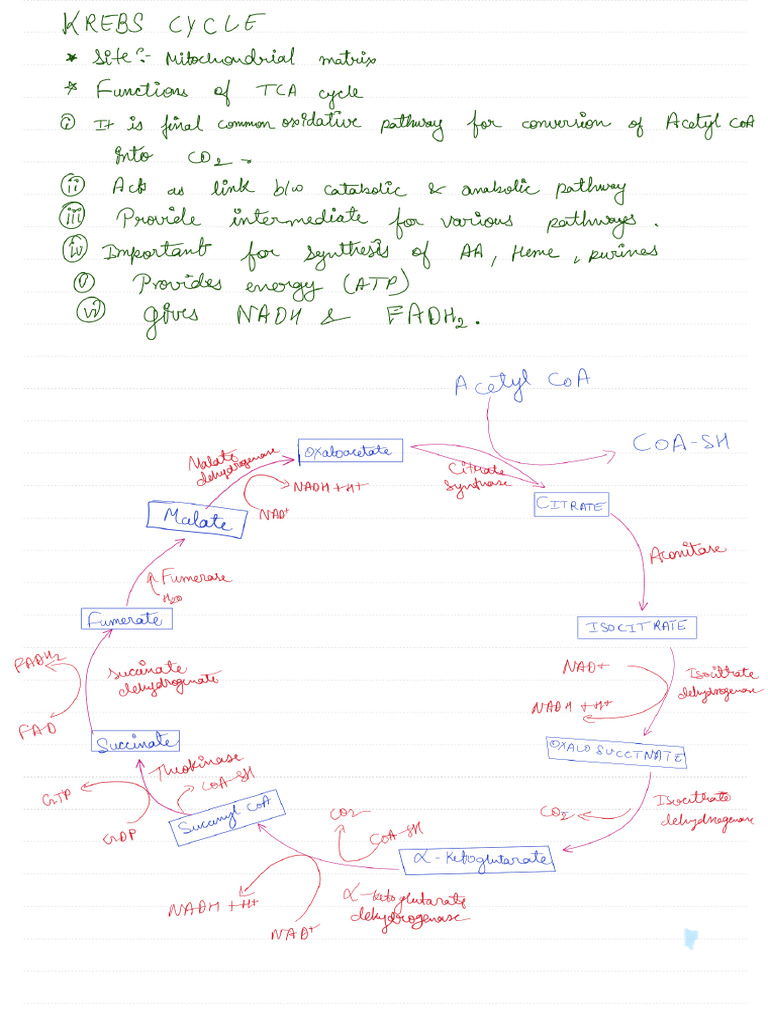 KREBS CYCLE
* Site:- Mitochondrial matrix
* Functions of TCA cycle
(i) It is final common oxidative pathway for conversion of Acetyl CoA
into CO2.
(ii) Act as link b/w catabolic & anabolic pathway
(iii) Provide intermediate for various pathways.
(iv) Important for synthesis of AA, Heme, purines
(v) Provides energy (ATP)
(vi) gives NADH & FADH2.
Acetyl CoA
CoA-SH
Oxaloacetate
Malate
dehydrogenase
Citrate
synthase
NADH+H+
NAD+
CITRATE
Malate
Aconitase
Fumerase
H2O
Fumerate
ISOCITRATE
FADH2
Succinate
dehydrogenate
FAD
NAD+
Isocitrate
dehydrogenase
NADH+H+
Succinate
OXALOSUCCINATE
Theokinase
CoA-SH
GTP
GDP
Succinyl CoA
CO2
CoA-SH
CO2
Isocitrate
dehydrogenase
α-Ketoglutarate
NADH+H+
NAD+
α-ketoglutarate
dehydrogenase